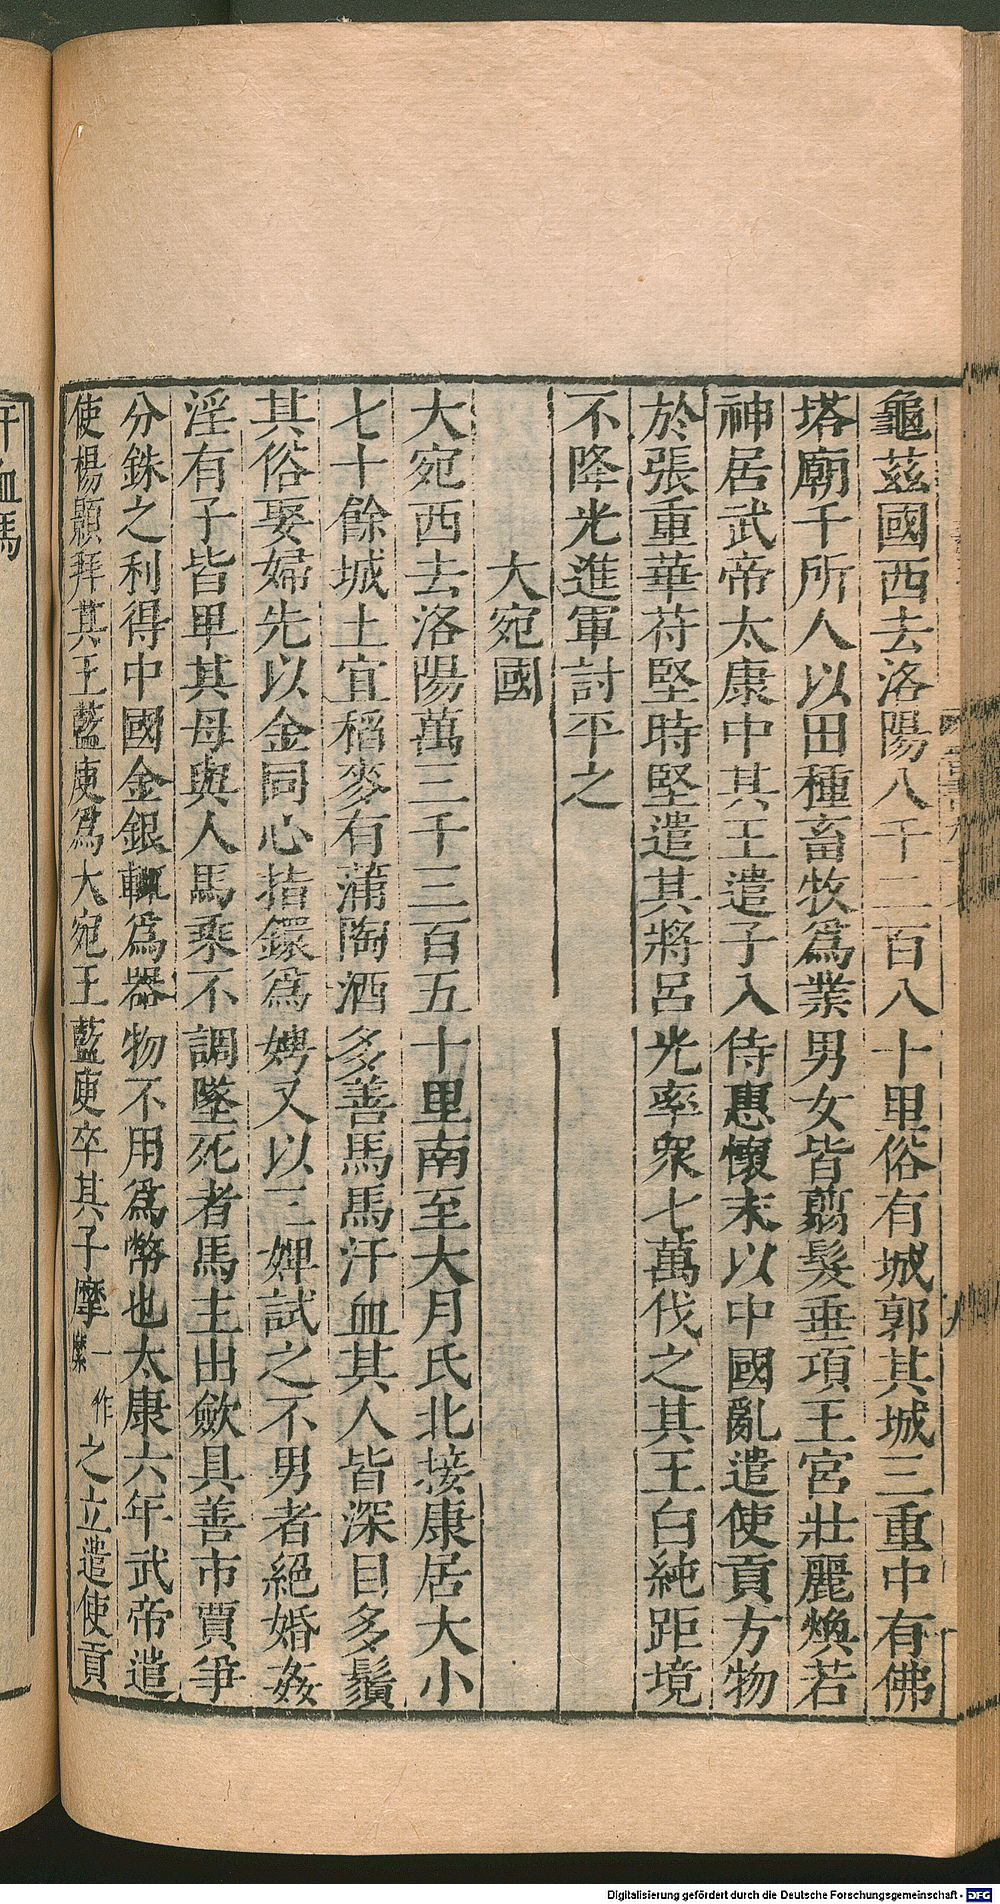 龜茲國西去洛陽八千二百八十里俗有城郭其城三重中有佛
塔廟千所人以田種畜牧爲業男女皆翦髮垂項王宮壯麗煥若
神居武帝太康中其王遣子入侍惠懷末以中國亂遣使貢方物
於張重華苻堅時堅遣其將呂光率衆七萬伐之其王白純距境
不降光進軍討平之
大宛國
大宛西去洛陽萬三千三百五十里南至大月氏北接康居大小
七十餘城土宜稻麥有蒲陶酒多善馬馬汗血其人皆深目多鬚
其俗娶婦先以金同心指鐶爲娉又以三婢試之不男者絕婚姦
淫有子皆卑其母與人馬乘不調墜死者馬主出歛具善市賈爭
分銖之利得中國金銀輒爲器物不用爲幣也太康六年武帝遣
使楊顥拜其王藍庾爲大宛王藍庾卒其子摩一作縻之立遣使貢
汗血馬
Digitalisierung gefördert durch die Deutsche Forschungsgemeinschaft - DFG